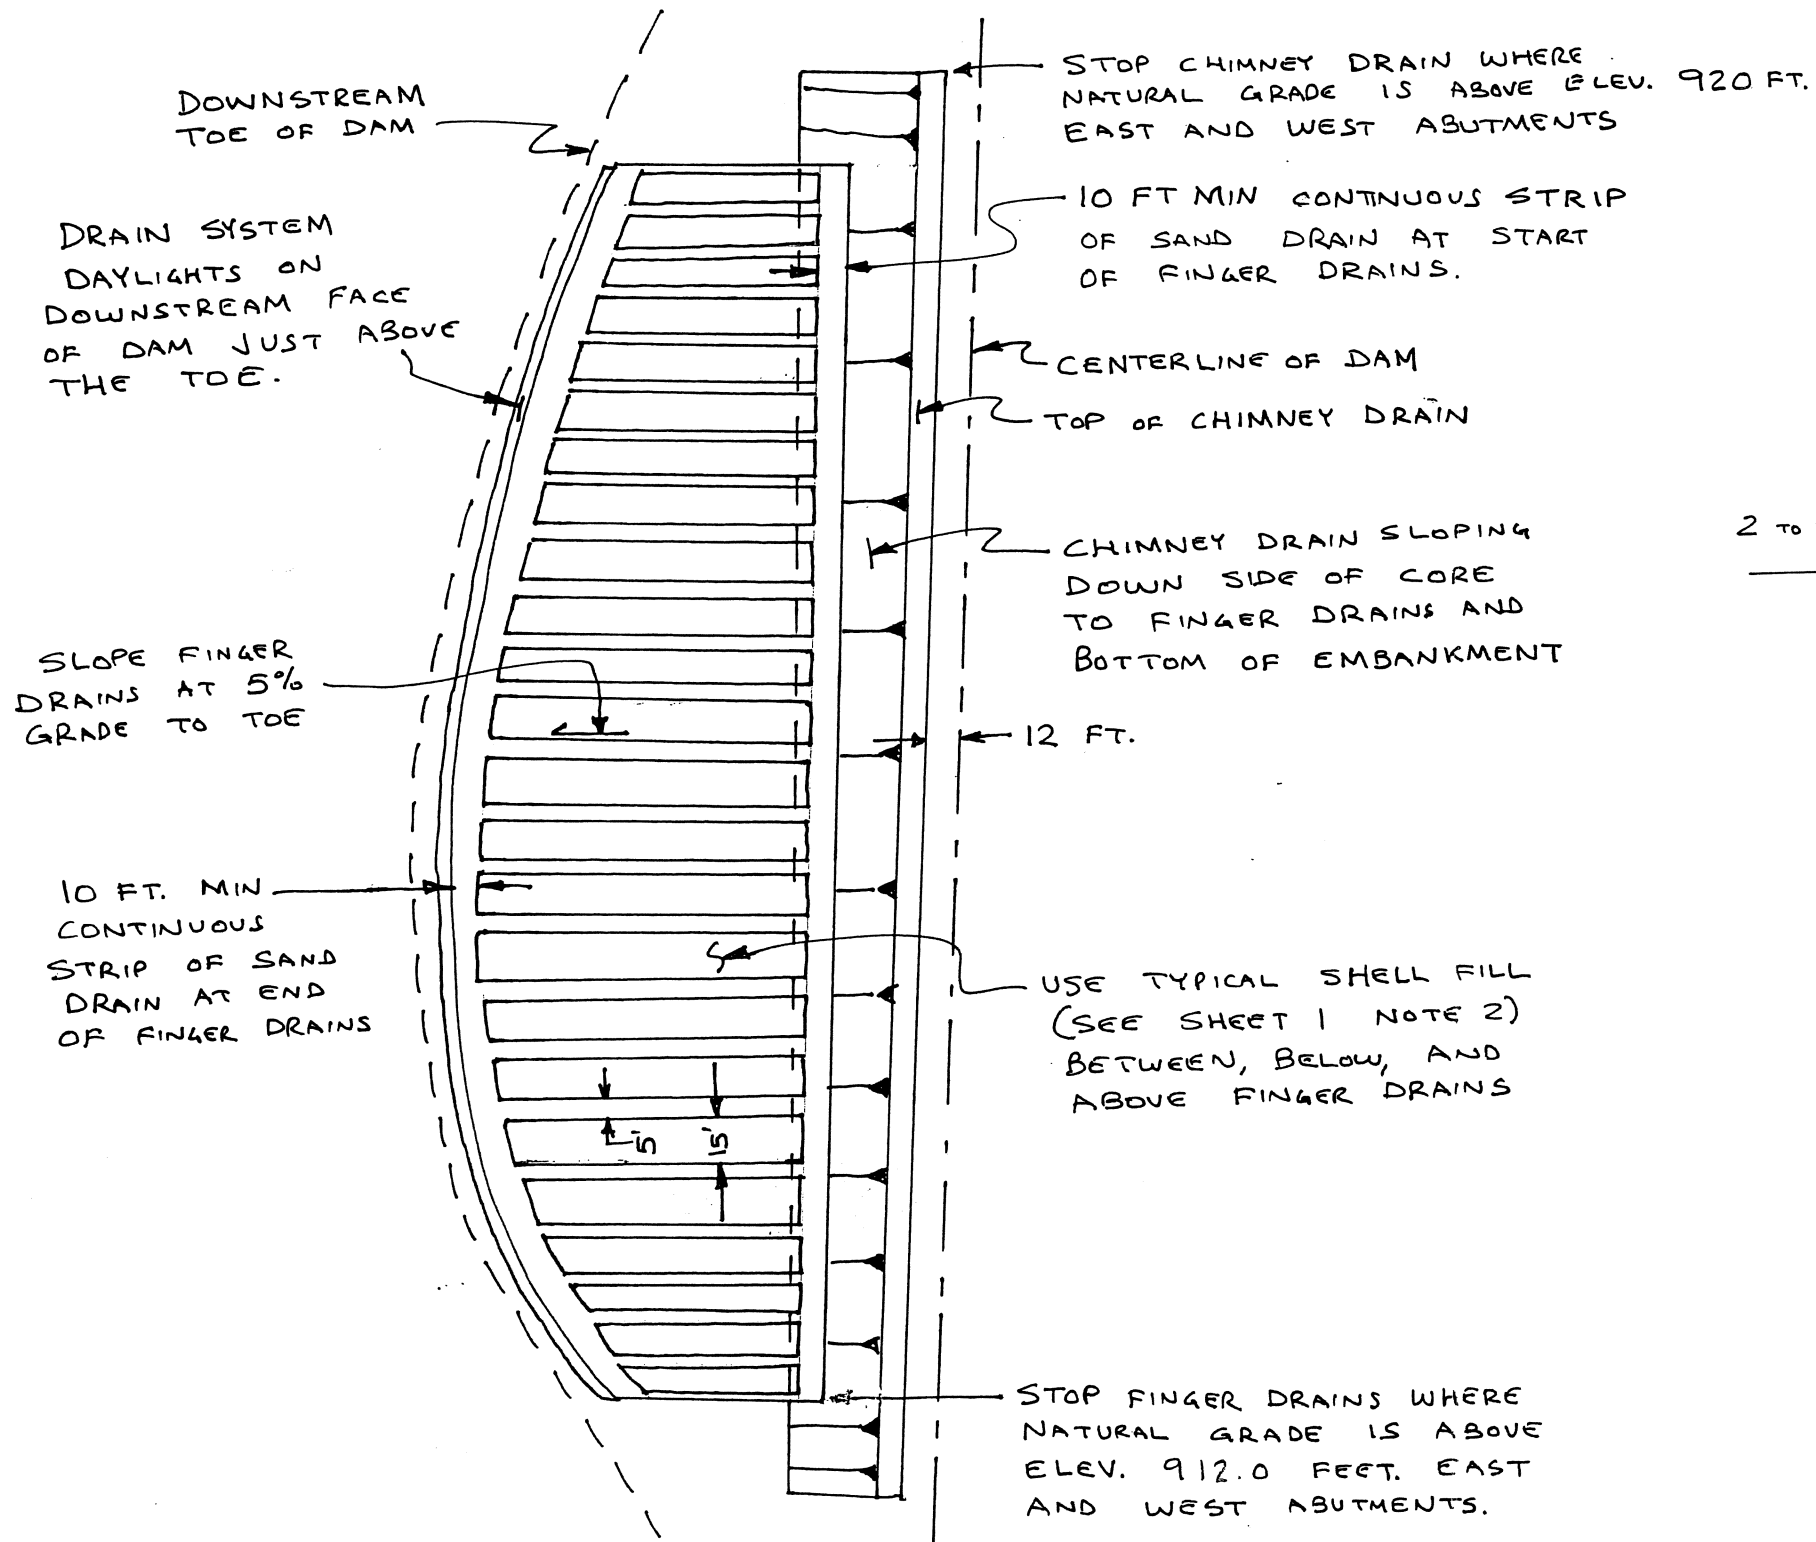 DOWNSTREAM
TOE OF DAM
DRAIN SYSTEM
DAYLIGHTS ON
DOWNSTREAM FACE
OF DAM JUST ABOVE
THE TOE.
SLOPE FINGER
DRAINS AT 5%
GRADE TO TOE
10 FT. MIN
CONTINUOUS
STRIP OF SAND
DRAIN AT END
OF FINGER DRAINS
5'
15'
STOP CHIMNEY DRAIN WHERE
NATURAL GRADE IS ABOVE ELEV. 920 FT.
EAST AND WEST ABUTMENTS
10 FT MIN CONTINUOUS STRIP
OF SAND DRAIN AT START
OF FINGER DRAINS.
CENTERLINE OF DAM
TOP OF CHIMNEY DRAIN
CHIMNEY DRAIN SLOPING
DOWN SIDE OF CORE
TO FINGER DRAINS AND
BOTTOM OF EMBANKMENT
2 TO
12 FT.
USE TYPICAL SHELL FILL
(SEE SHEET 1 NOTE 2)
BETWEEN, BELOW, AND
ABOVE FINGER DRAINS
STOP FINGER DRAINS WHERE
NATURAL GRADE IS ABOVE
ELEV. 912.0 FEET. EAST
AND WEST ABUTMENTS.